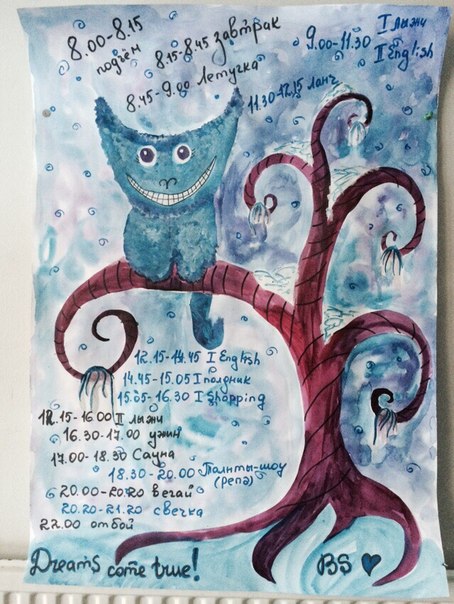 8.00-8.15
подъём
8.15-8.45 завтрак
8.45-9.00 летучка
9.00-11.30 I лыжи
II English
11.30-12.15 ланч
12.15-14.45 I English
14.45-15.05 I полдник
15.05-16.30 I Shopping
12.15-16.00 II лыжи
16.30-17.00 ужин
17.00-18.30 Сауна
18.30-20.00 Таланты-шоу
(репа)
20.00-20.20
20.20-21.20 свечка
22.00 отбой
Dreams come true!
BS